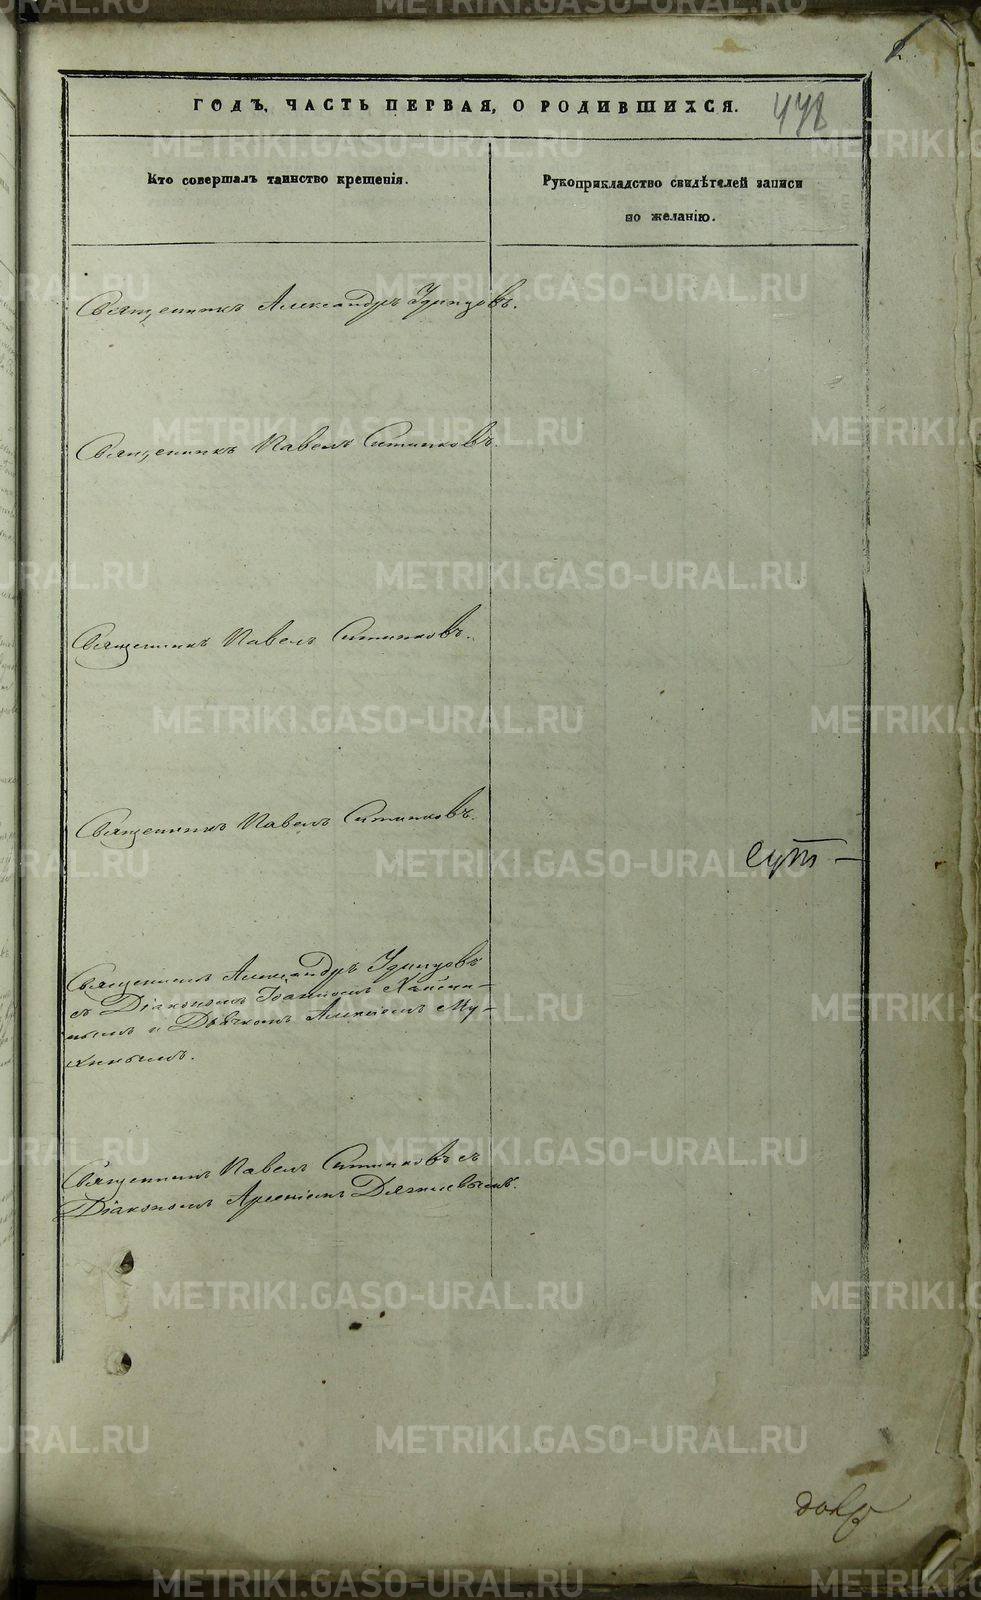 2.
ГОДЪ, ЧАСТЬ ПЕРВАЯ, О РОДИВШИХСЯ.
478
Кто совершалъ таинство крещенія.
Рукоприкладство свидѣтелей записи
по желанію.
Священникъ Александръ Удинцовъ.
Священникъ Павелъ Ситниковъ.
Священникъ Павелъ Ситниковъ.
Священникъ Павелъ Ситниковъ.
Священникъ Александръ Удинцовъ
съ Діакономъ Іоанномъ
и Дьячкомъ Алексіемъ Му-
хинымъ.
Священникъ Павелъ Ситниковъ съ
Діакономъ Арсеніемъ Дягилевымъ.
METRIKI.GASO-URAL.RU